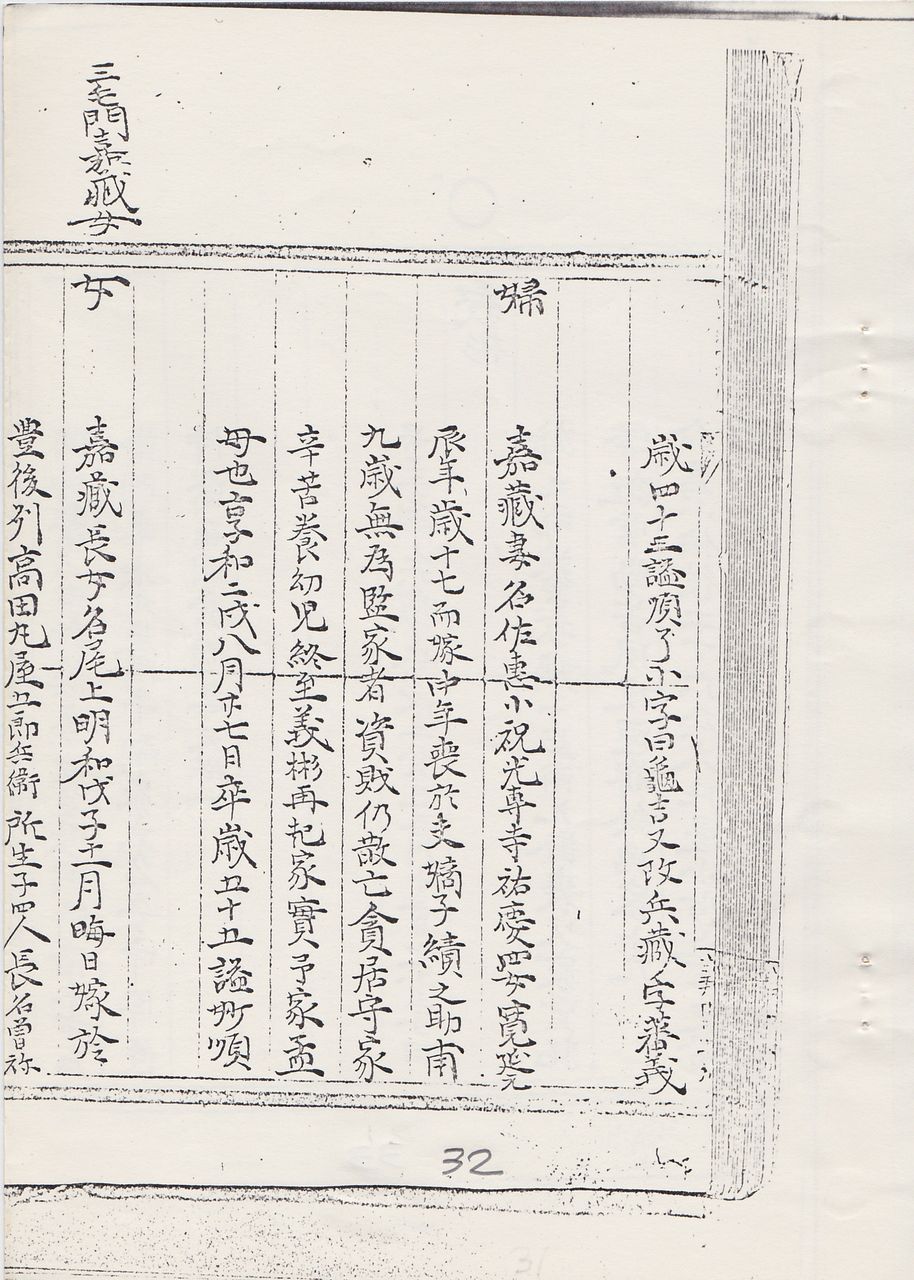 歳四十三謚順了小字曰龜吉又改兵藏字蕃義
婦
嘉藏妻名佐惠小祝光専寺祐慶四女寛延元
辰年歳十七而嫁中年喪於夫嫡子績之助甫
九歳無為監家者資財仍散亡貪居守家
辛苦養幼児終至義彬再起家實予家孟
母也享和二戌八月廿七日卒歳五十五謚妙順
三毛門嘉藏女
女
嘉藏長女名尾上明和戊子十一月晦日嫁於
豊後列高田丸屋五郎兵衛所生子四人長名曽祢
32